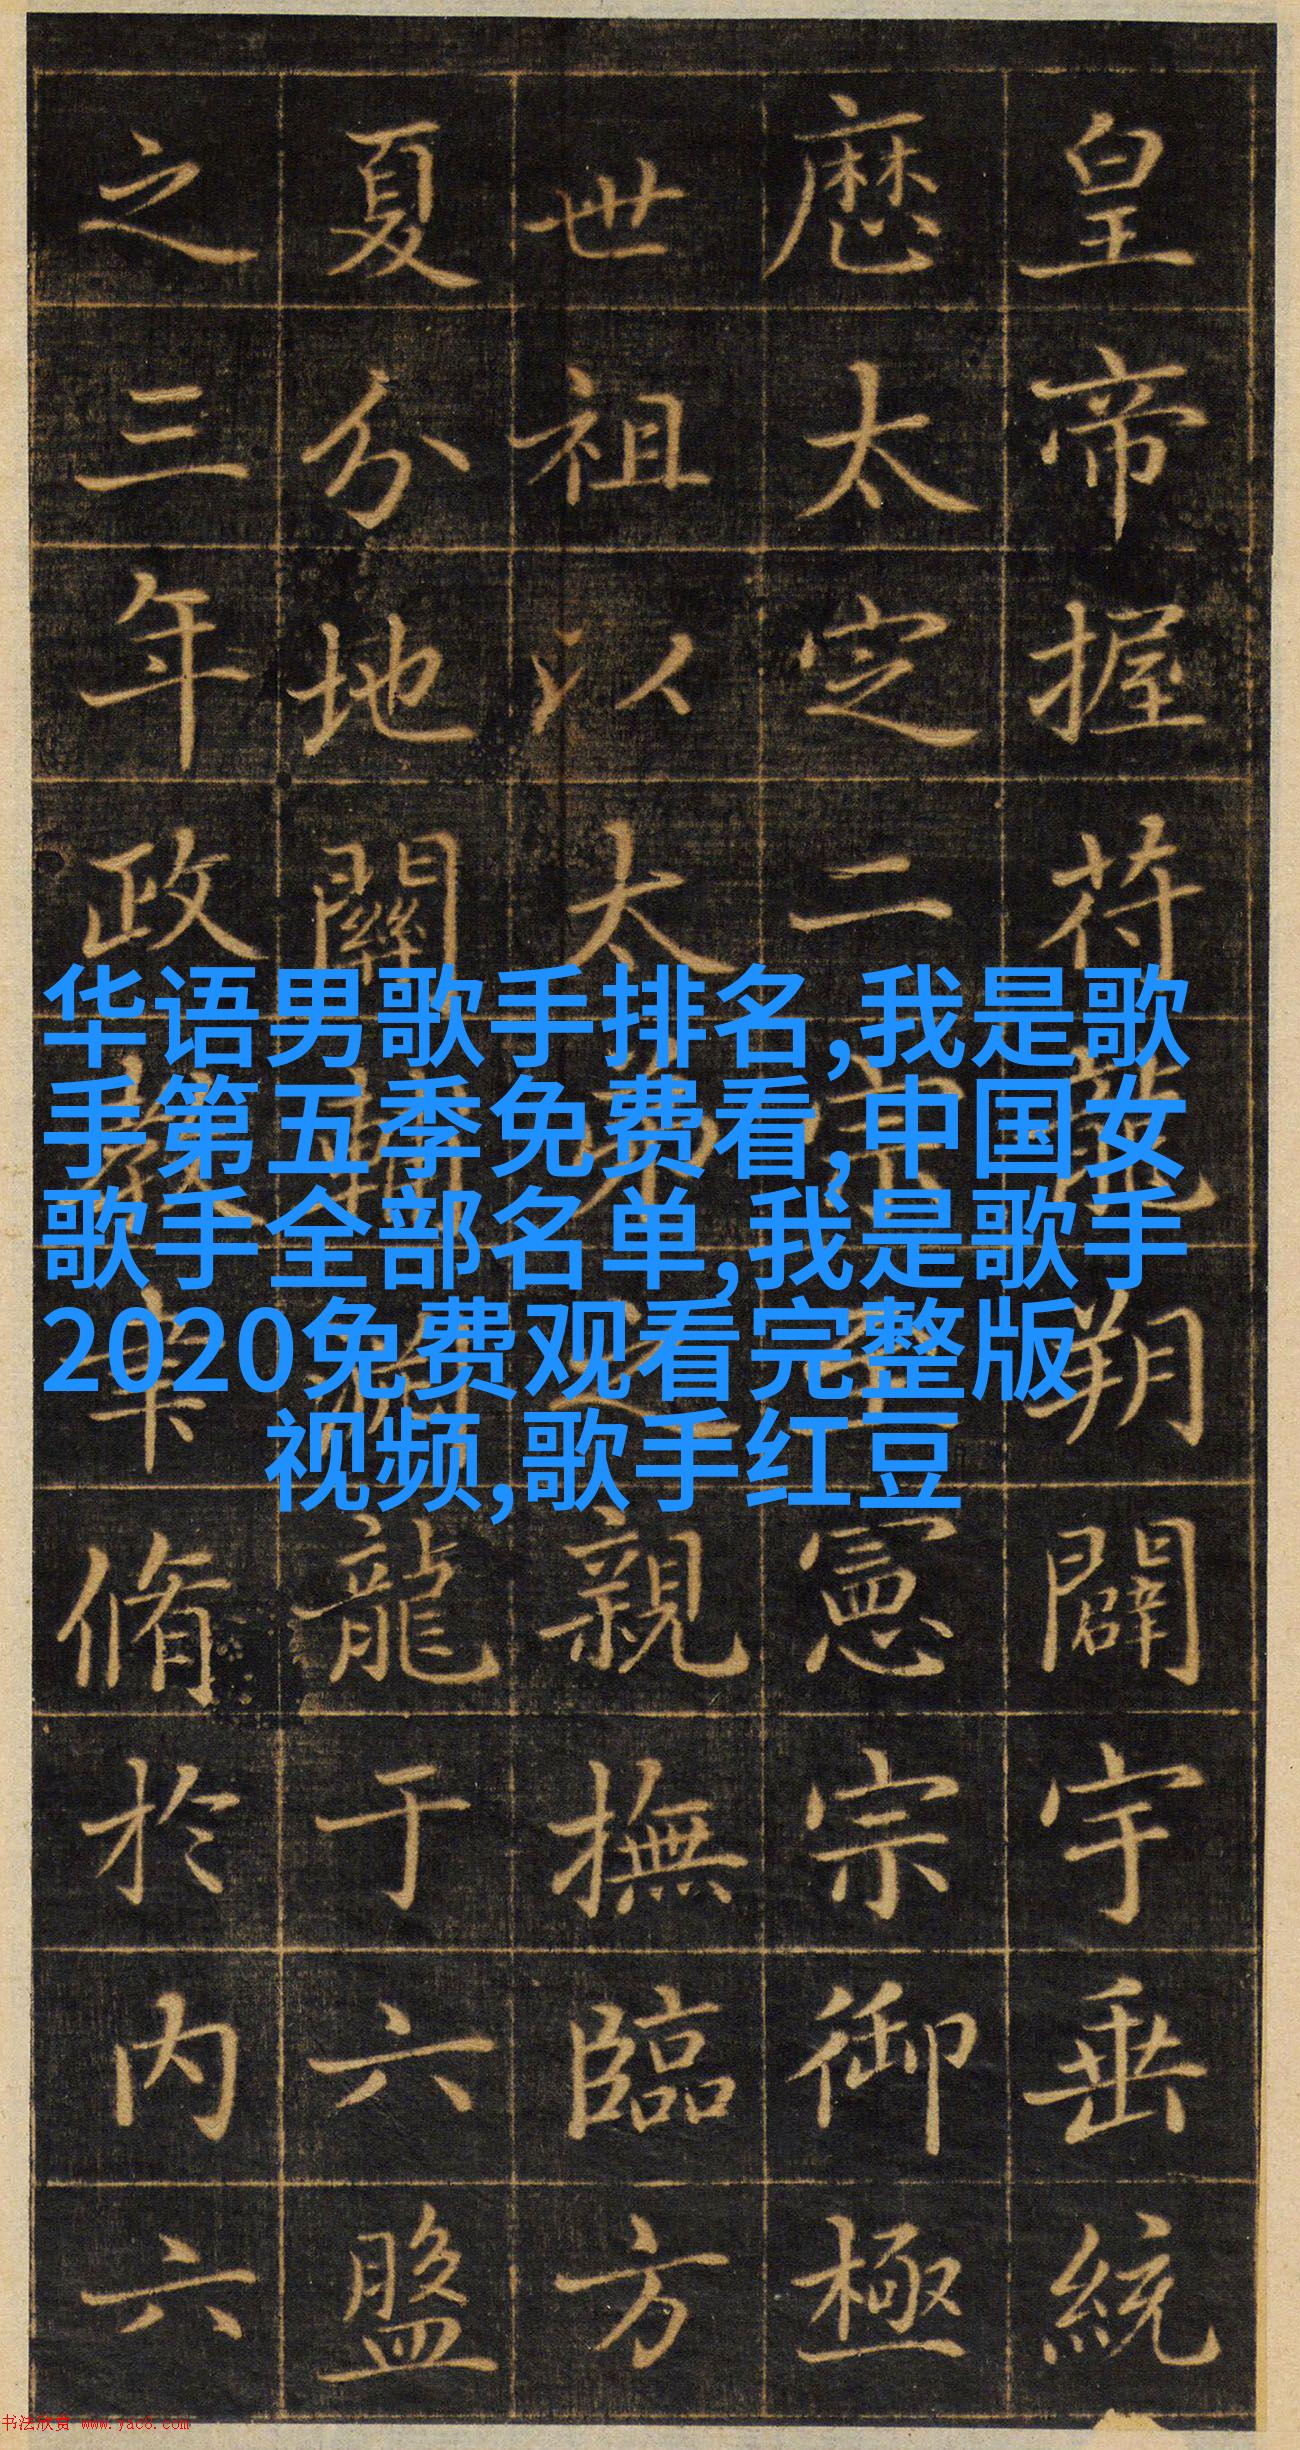 皇帝握苻朔闢宇垂統
厯太定二宗憲宗御極
世祖以太弟之親撫臨方
夏分地關輔龍于六盤
之三年政教脩於内六
华语男歌手排名,我是歌
手第五季免费看,中国女
歌手全部名单,我是歌手
2020免费观看完整版
视频,歌手红豆
书法欣赏 www.yac8.com